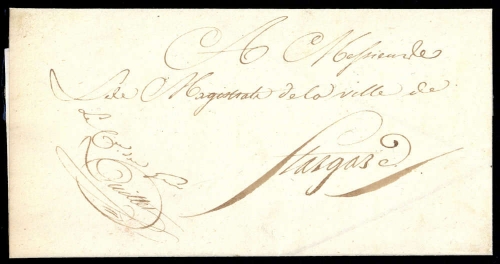 A Messieurs
Les Magistrats de la ville de
Stargard